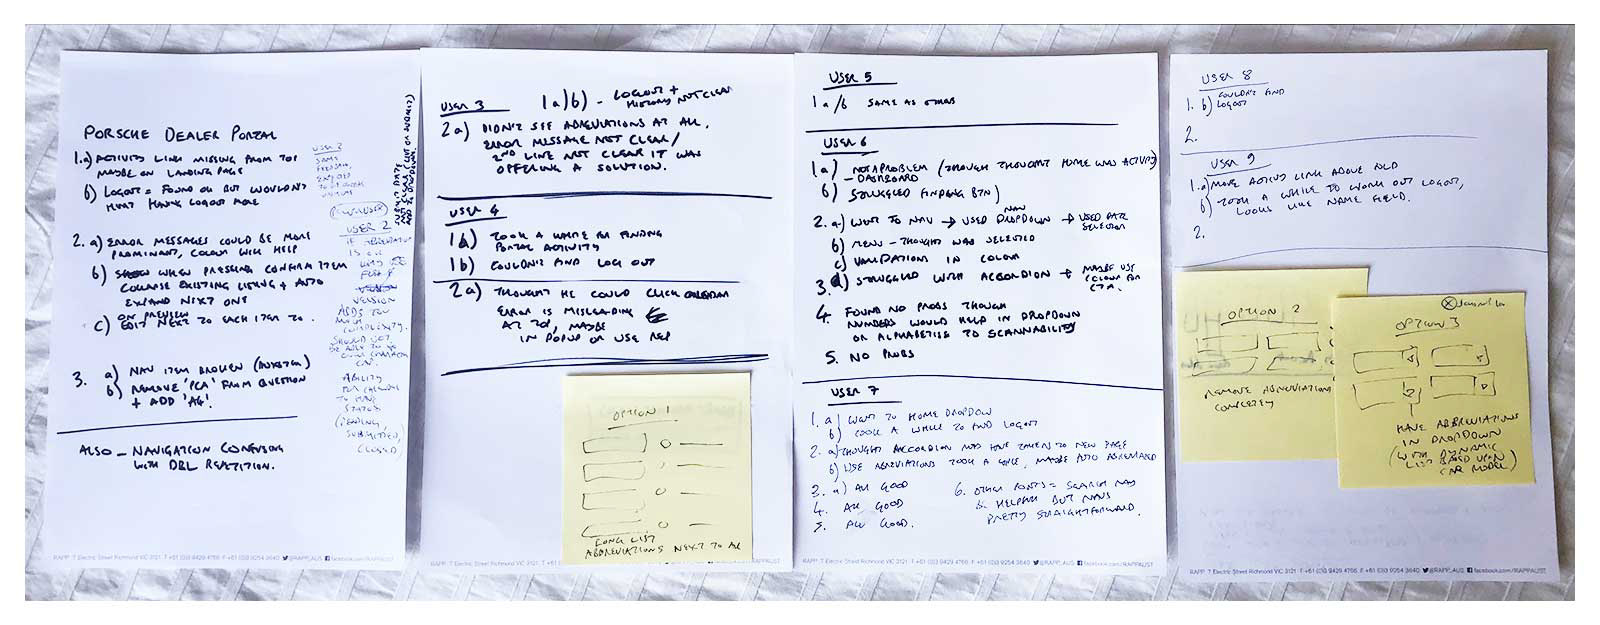 PORSCHE DEALER PORTAL
1. a) ACTIVITY LINK MISSING FROM TOP
MAYBE ON LANDING PAGE
b) LOGOUT = FOUND OK BUT WOULDN'T
MIND HAVING LOGOUT MORE
2. a) ERROR MESSAGES COULD BE MORE
PROMINENT, COLOUR WILL HELP
b) WHEN PRESSING CONFIRM ITEM
COLLAPSE EXISTING LISTING + AUTO
EXPAND NEXT ONE
ON PREVIEW
c) EDIT NEXT TO EACH ITEM TO
3. a) NAV ITEM BROKEN
b) REMOVE 'PCA' FROM QUESTION
+ ADD 'AG'.
ALSO - NAVIGATION CONFUSING
WITH DBL REPETITION.
USER 2
IF
IS
VERSION
ADDS TOO
MUCH
COMPLEXITY.
SHOULD NOT
BE ABLE TO
ABILITY
TO HAVE
STATUS
(PENDING,
SUBMITTED,
CLOSED
USER 3
1a)b) - LOGOUT +
HISTORY NOT CLEAR
2a) DIDN'T SEE ABREVIATIONS AT ALL.
ERROR MESSAGE NOT CLEAR /
2ND LINE NOT CLEAR IT WAS
OFFERING A SOLUTION.
USER 4
1a) TOOK A WHILE FOR FINDING
PORTAL ACTIVITY
1b) COULDN'T FIND LOG OUT
2a) THOUGHT HE COULD CLICK CALENDAR
ERROR IS MISLEADING
AT TOP, MAYBE
IN POPUP OR USE RED
OPTION 1
LONG LIST
ABBREVIATIONS NEXT TO ALL
USER 5
1a/b SAME AS OTHERS
USER 6
1a) NOT A PROBLEM (THOUGH THOUGHT HOME WAS ACTIVITY)
- DASHBOARD
b) STRUGGLED FINDING BTN)
2. a) WENT TO NAV → USED NAV DROPDOWN → USED PAGE
SELECTION
b) MENU - THOUGHT WAS SELECTED
c) VALIDATIONS IN COLOUR
3. a) STRUGGLED WITH ACCORDION + MAYBE USE
COLOUR FOR
CTA.
4. FOUND NO PROBS THOUGH
NUMBERS WOULD HELP IN DROPDOWN
OR ALPHABETISE TO SCANNABILITY
5. NO PROBS
USER 7
1. a) WENT TO HOME DROPDOW
b) TOOK A WHILE TO FIND LOGOUT
2. a) THOUGHT ACCORDION MAY HAVE TAKEN TO NEW PAGE
b) USE ABREVIATIONS TOOK A WHILE, MAYBE AUTO
3. a) ALL GOOD
4. ALL GOOD
5. ALL GOOD.
6. OTHER POINTS = SEARCH NAV
IS HELPFUL BUT NAVS
PRETTY STRAIGHTFORWARD.
USER 8
1. b) COULDN'T FIND
LOGOUT
2.
USER 9
1. a) MOVE ACTIVITY LINK ABOVE OLD
b) TOOK A WHILE TO WORK OUT LOGOUT,
LOOKS LIKE NAME FIELD.
2.
OPTION 2
REMOVE ABBREVIATIONS
COMPLETELY
OPTION 3
HAVE ABBREVIATIONS
IN DROPDOWN
(WITH DYNAMIC
LIST BASED UPON
CAR MODEL)
RAPP. 7 Electric Street Richmond VIC 3121. T +61 (0)3 9429 4766. F +61 (0)3 9254 3640 @RAPP_AUS facebook.com/RAPPAUST
RAPP. 7 Electric Street Richmond VIC 3121. T +61 (0)3 9429 4766. F +61 (0)3 9254 3640 @RAPP_AUS facebook.com/RAPPAUST
RAPP. 7 Electric Street Richmond VIC 3121. T +61 (0)3 9429 4766. F +61 (0)3 9254 3640 @RAPP_AUS facebook.com/RAPPAUST